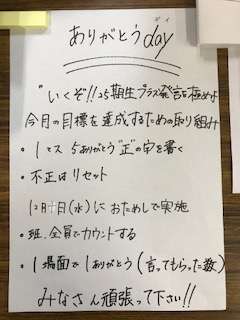 ありがとうday
デイ
"いくぞ!!25期生プラス発言を極めよ
今月の目標を達成するための取り組み
・1マス 5ありがとう"正"の字を書く
・不正はリセット
12月 日(水)におためしで実施
・班、全員でカウントする
・1場面で1ありがとう(言ってもらった数)
みなさん頑張って下さい!!